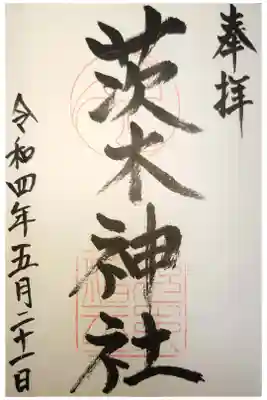 奉拝
茨木神社
令和四年五月二十一日